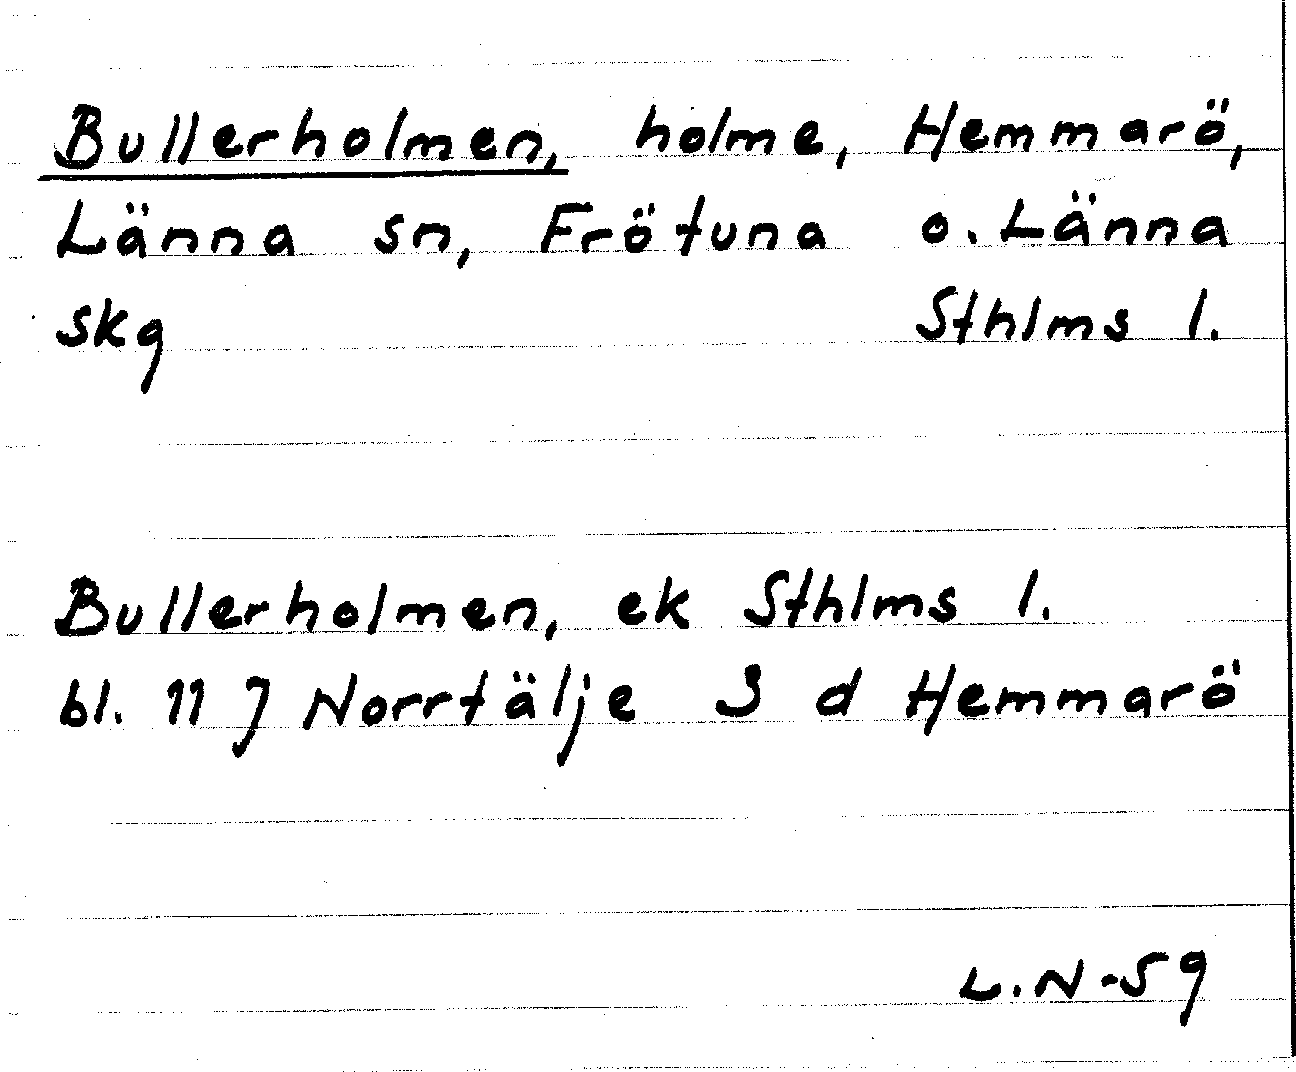 Bullerholmen, holme, Hemmarö,
Länna sn, Frötuna o. Länna
skg Sthlms l.
Bullerholmen, ek Sthlms l.
bl. 11 J Norrtälje 3 d Hemmarö
L.N-59